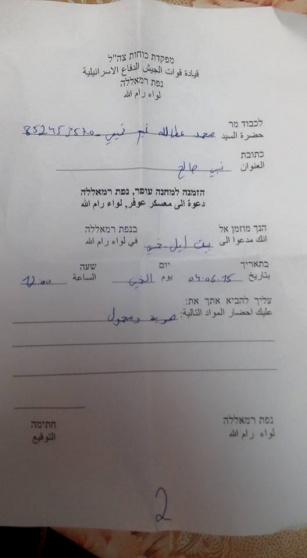 מפקדת כוחות צה"ל
قيادة قوات الجيش الدفاع الاسرائيلية
נפת רמאללה
لواء رام الله
לכבוד מר
حضرة السيد محمد عطالله
כתובת
العنوان نبي صالح
הזמנה למחנה עופר, נפת רמאללה
دعوة الى معسكر عوفر, لواء رام الله
הנך מוזמן אל בנפת רמאללה
انك مدعوا الى بيت إيل في لواء رام الله
בתאריך יום שעה
بتاريخ 04.06.15 يوم الساعة 12:00
עליך להביא אתך את:
عليك احضار المواد التالية: هوية
נפת רמאללה חתימה
لواء رام الله التوقيع
2